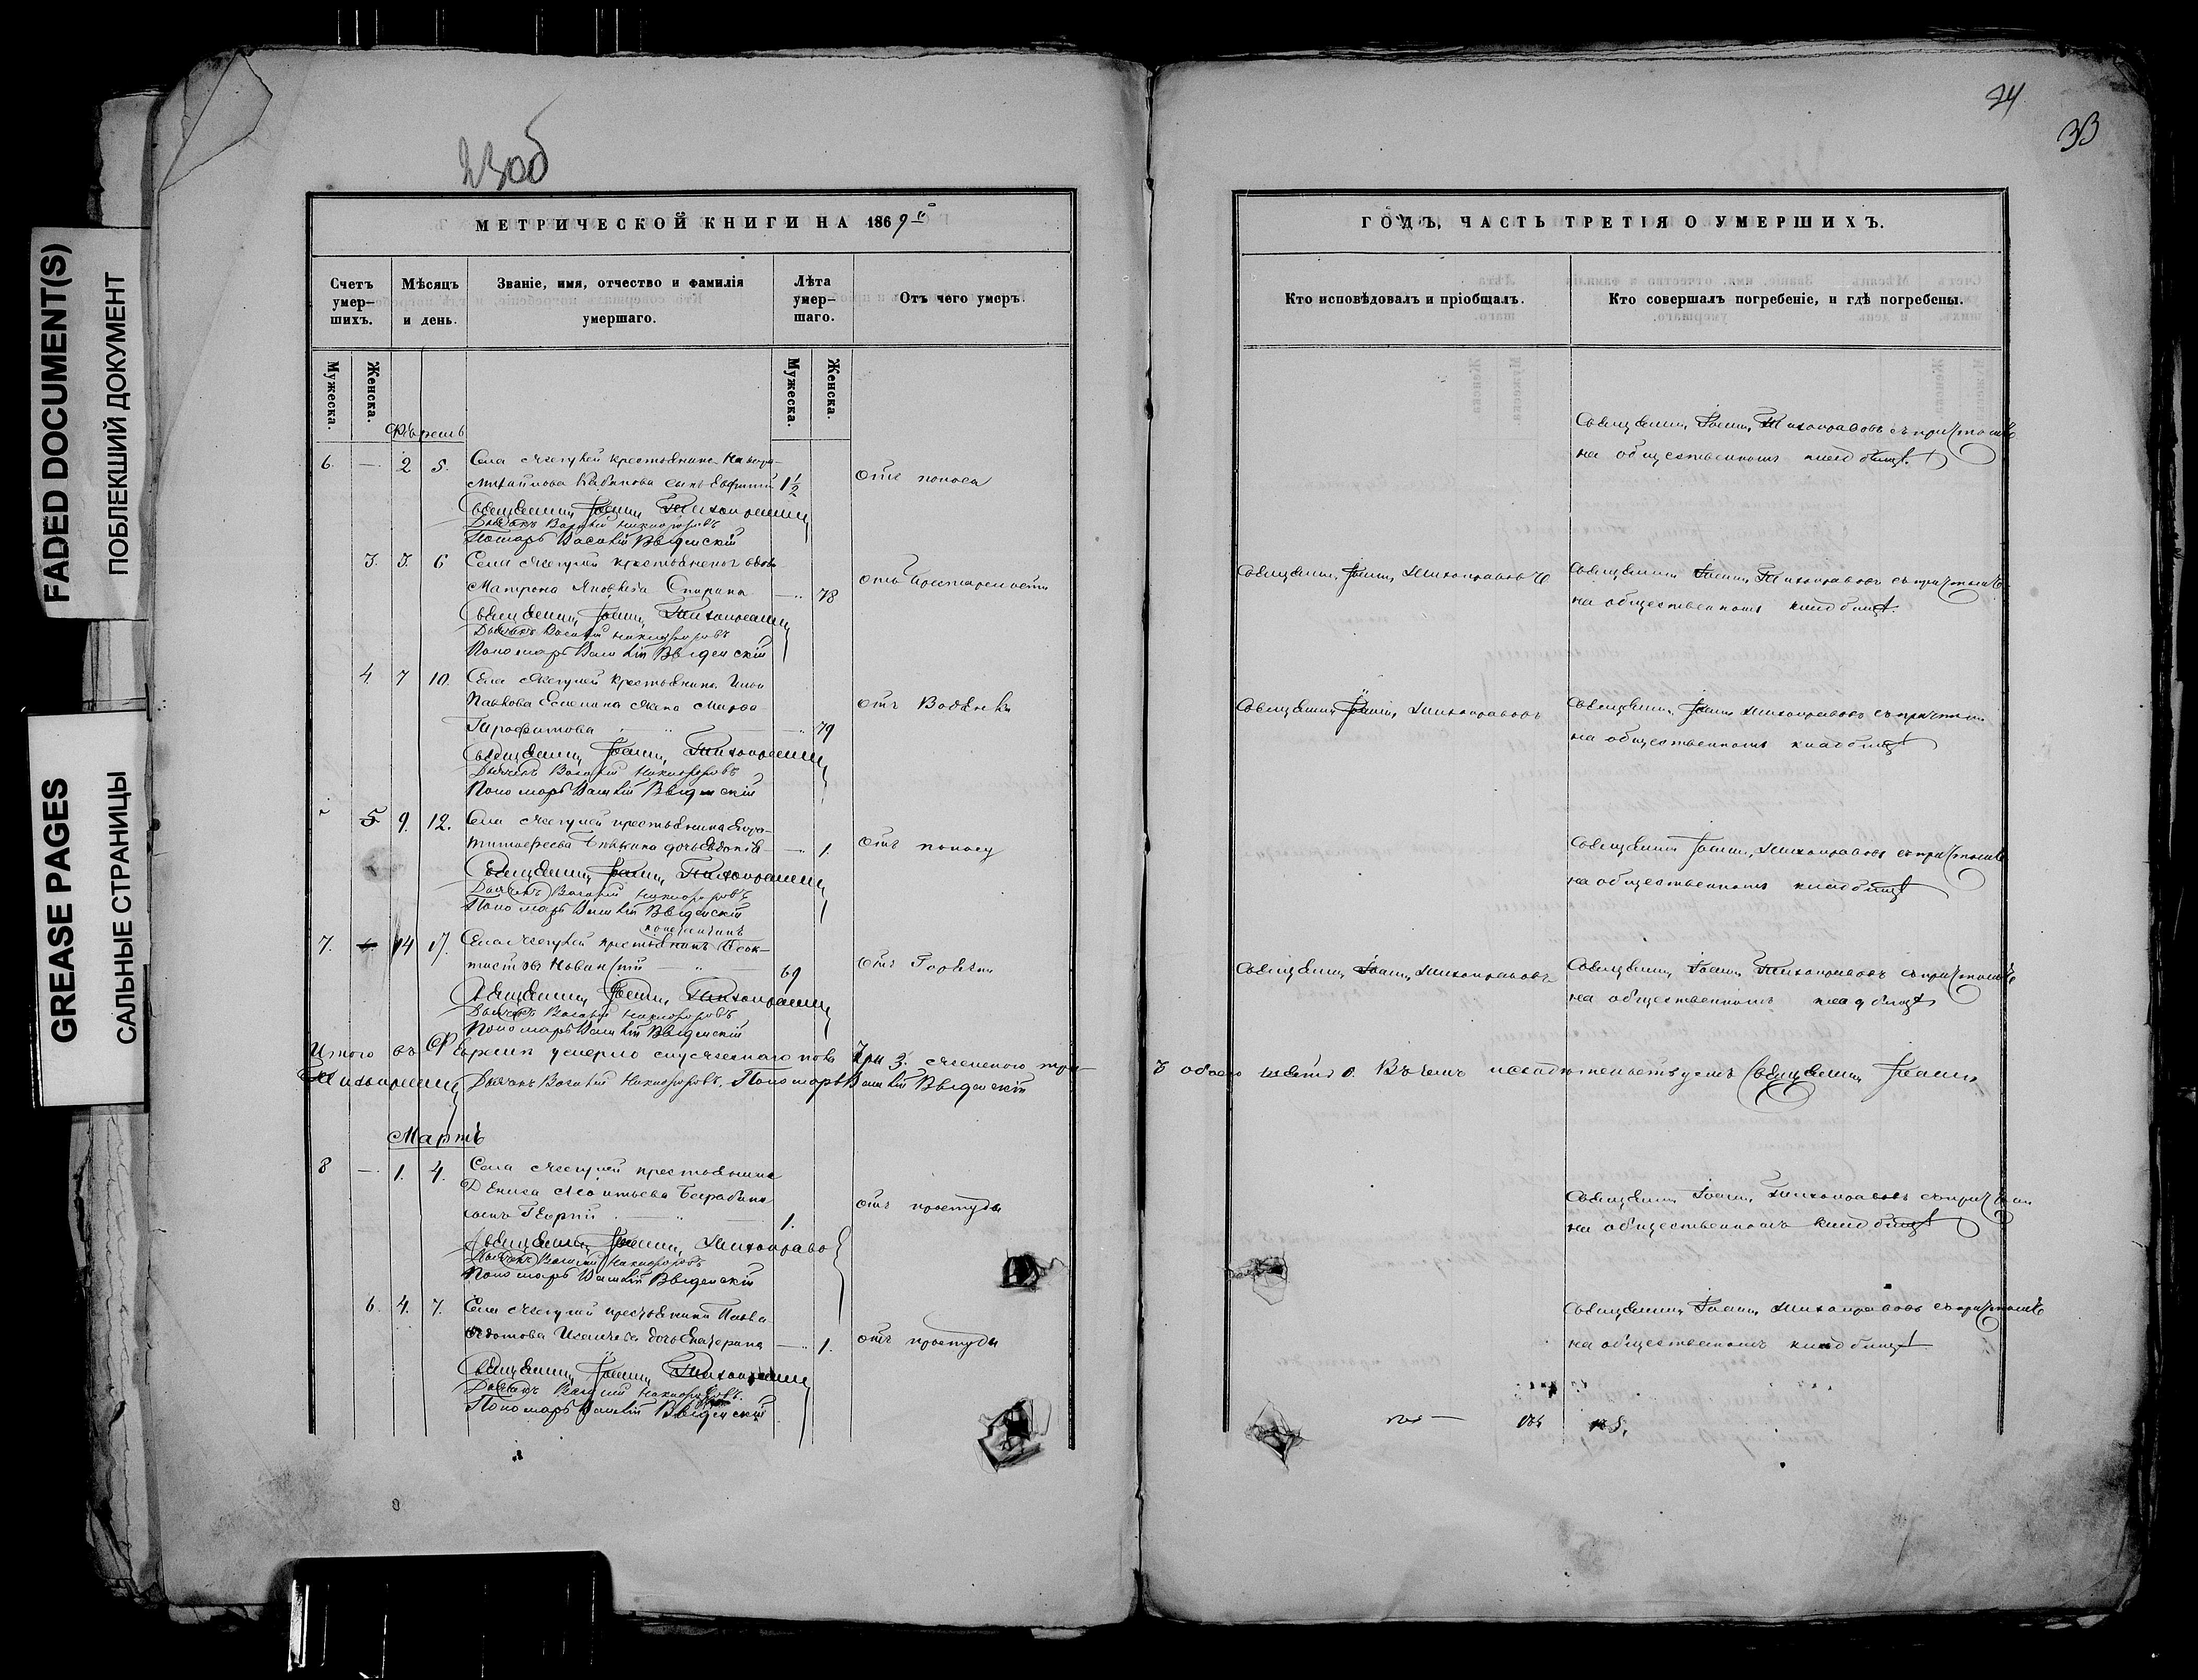 FADED DOCUMENT(S)
ПОБЛЕКШИЙ ДОКУМЕНТ
GREASE PAGES
САЛЬНЫЕ СТРАНИЦЫ
23об
МЕТРИЧЕСКОЙ КНИГИ НА 1869
Счетъ умер-шихъ.
Мѣсяцъ и день.
Званіе, имя, отчество и фамилія умершаго.
Лѣта умер-шаго.
Отъ чего умеръ.
Мужеска.
Женска.
Мужеска.
Женска.
Февраль
6. — 2 5. Села крестьянина
Михайлова сынъ Евфимій 1½ отъ поноса
Священникъ Іоаннъ Тихонравовъ
Дьячекъ Василій Никифоровъ
Пономарь Василій Введенскій
3. 3. 6 Села крестьянская вдова
Матрона Яковлева Спирина — 78 отъ престарелости
Священникъ Іоаннъ Тихонравовъ
Дьячекъ Василій Никифоровъ
Пономарь Василій Введенскій
4. 7 10. Села крестьянина Ильи
Павлова жена Марѳа
— 79 отъ Водянки
Священникъ Іоаннъ Тихонравовъ
Дьячекъ Василій Никифоровъ
Пономарь Василій Введенскій
5 9. 12. Села крестьянина Егора
Тимофеева дочь Евдокія — 1. отъ поносу
Священникъ Іоаннъ Тихонравовъ
Дьячекъ Василій Никифоровъ
Пономарь Василій Введенскій
7. 14 17. Села крестьянинъ Ѳеок-
тистовъ 69 отъ Горячки
Священникъ Іоаннъ Тихонравовъ
Дьячекъ Василій Никифоровъ
Пономарь Василій Введенскій
Итого въ Февралѣ умерло мужескаго пола три 3. женскаго три
Тихонравовъ Дьячекъ Василій Никифоровъ. Пономарь Василій Введенскій
Мартъ
8 — 1. 4. Села крестьянина
Дениса
сынъ Георгій — 1. отъ простуды
Священникъ Іоаннъ Тихонравовъ
Дьячекъ Василій Никифоровъ
Пономарь Василій Введенскій
6. 4. 7. Села крестьянина Павла
Ѳедотова дочь Екатерина — 1. отъ простуды
Священникъ Іоаннъ Тихонравовъ
Дьячекъ Василій Никифоровъ
Пономарь Василій Введенскій
24
33
ГОДЪ, ЧАСТЬ ТРЕТІЯ О УМЕРШИХЪ.
Кто исповѣдовалъ и пріобщалъ.
Кто совершалъ погребеніе, и гдѣ погребены.
Священникъ Іоаннъ Тихонравовъ съ причтомъ
на общественномъ кладбищѣ
Священникъ Іоаннъ Тихонравовъ
Священникъ Іоаннъ Тихонравовъ съ причтомъ
на общественномъ кладбищѣ.
Священникъ Іоаннъ Тихонравовъ
Священникъ Іоаннъ Тихонравовъ съ причтомъ
на общественномъ кладбищѣ
Священникъ Іоаннъ Тихонравовъ съ причтомъ
на общественномъ кладбищѣ
Священникъ Іоаннъ Тихонравовъ
Священникъ Іоаннъ Тихонравовъ съ причтомъ
на общественномъ кладбищѣ
обоего шесть 6. Въ чемъ и свидѣтельствуемъ Священникъ Іоаннъ
Священникъ Іоаннъ Тихонравовъ съ причтомъ
на общественномъ кладбищѣ
Священникъ Іоаннъ Тихонравовъ съ причтомъ
на общественномъ кладбищѣ